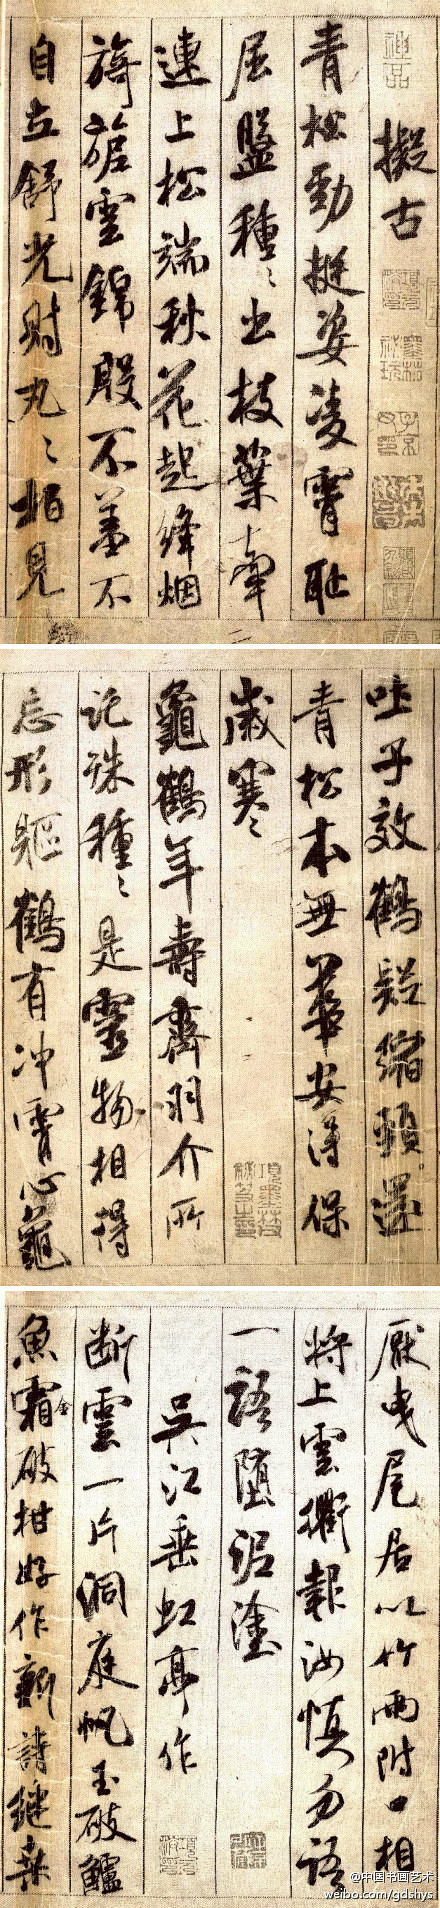 擬古
青松勁挺姿凌霄恥
屈盤種〻出枝葉牽
連上松端秋花起絳烟
旖旎雲錦殷不羞不
自立舒光射丸〻柏見
吐子效鶴疑縮頸還
青松本無華安得保
歲寒
龜鶴年壽齊羽介所
託殊種〻是靈物相得
忘形軀鶴有冲霄心龜
厭曳尾居以竹兩附口相
將上雲衢報汝慎勿語
一語墮泥塗
吳江垂虹亭作
断雲一片洞庭帆玉破鱸
魚霜金破柑好作新詩繼桑
@中国书画艺术
weibo.com/gdshys